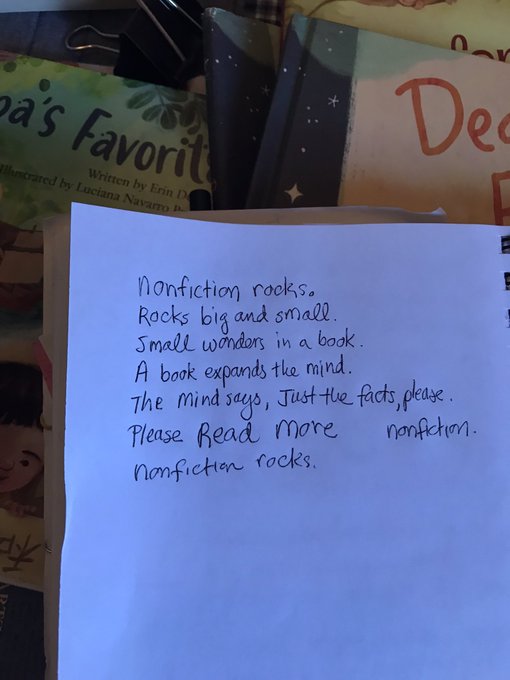 pa's Favorit
Written by Erin D
Illustrated by Luciana Navarro P
Dea
nonfiction rocks.
Rocks big and small.
Small wonders in a book.
A book expands the mind.
The mind says, Just the facts, please.
Please Read more nonfiction.
nonfiction rocks.